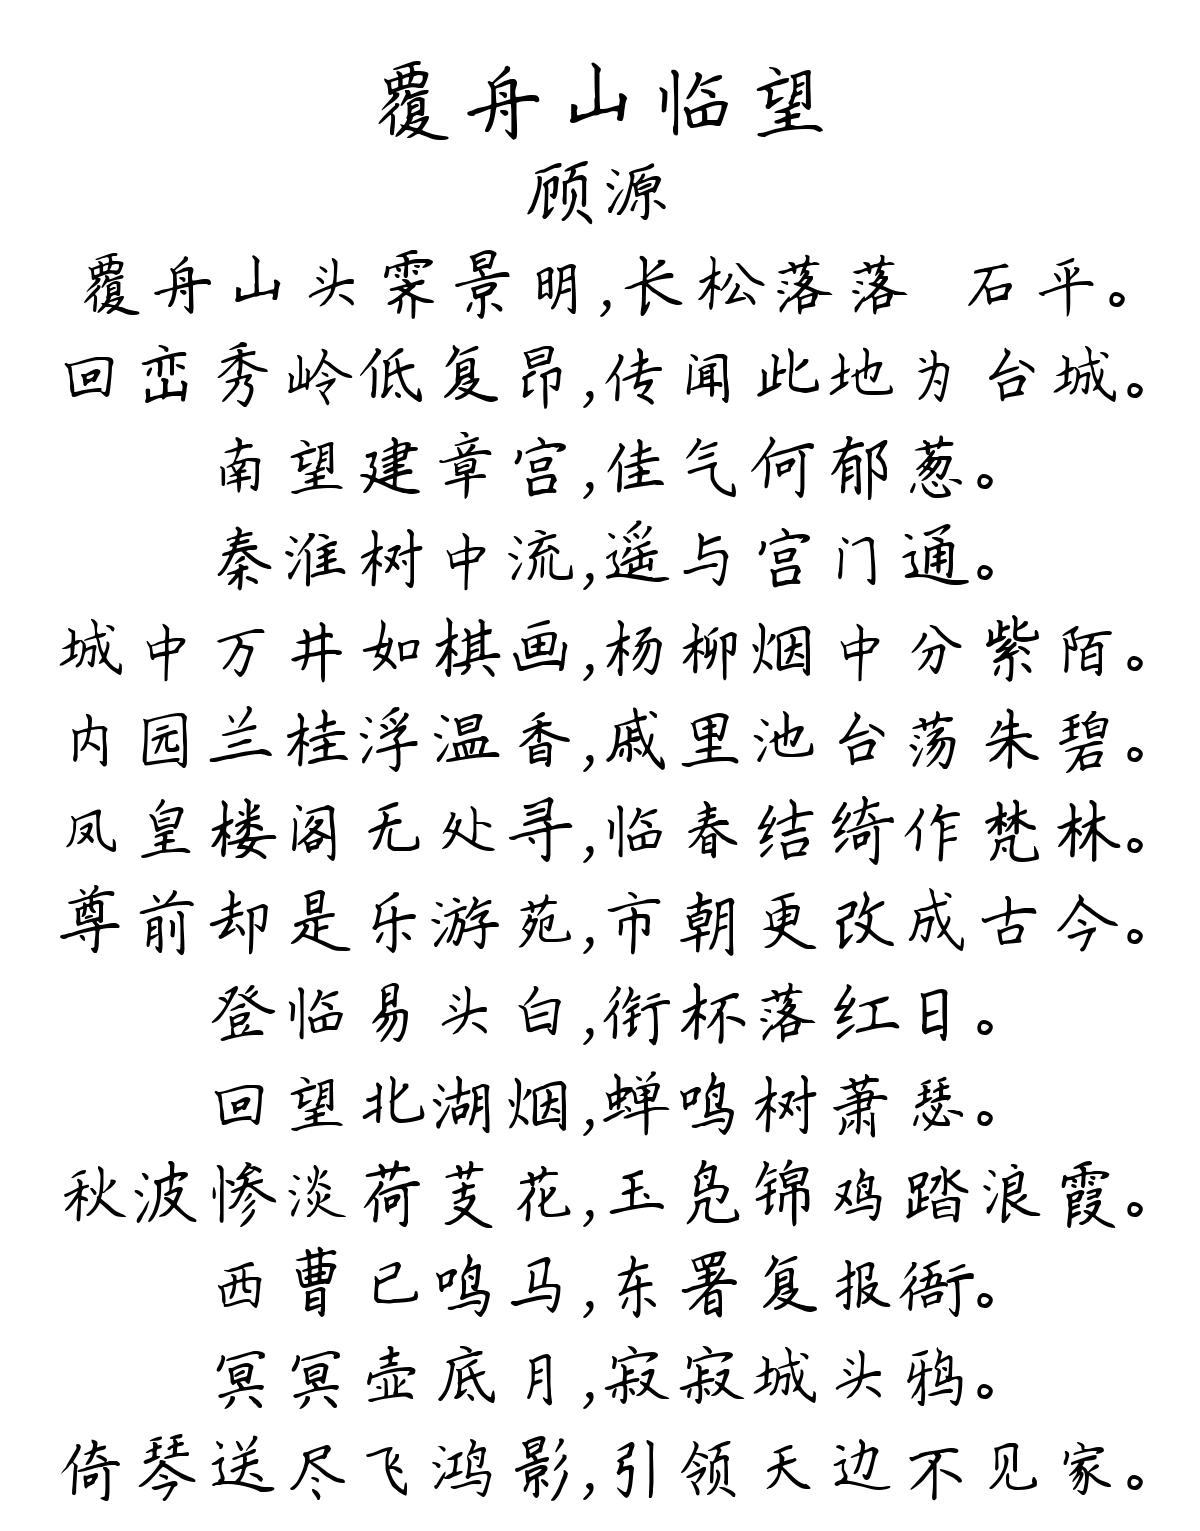 覆舟山临望
顾源
覆舟山头霁景明,长松落落 石平。
回峦秀岭低复昂,传闻此地为台城。
南望建章宫,佳气何郁葱。
秦淮树中流,遥与宫门通。
城中万井如棋画,杨柳烟中分紫陌。
内园兰桂浮温香,戚里池台荡朱碧。
凤皇楼阁无处寻,临春结绮作梵林。
尊前却是乐游苑,市朝更改成古今。
登临易头白,衔杯落红日。
回望北湖烟,蝉鸣树萧瑟。
秋波惨淡荷芰花,玉凫锦鸡踏浪霞。
西曹已鸣马,东署复报衙。
冥冥壶底月,寂寂城头鸦。
倚琴送尽飞鸿影,引领天边不见家。